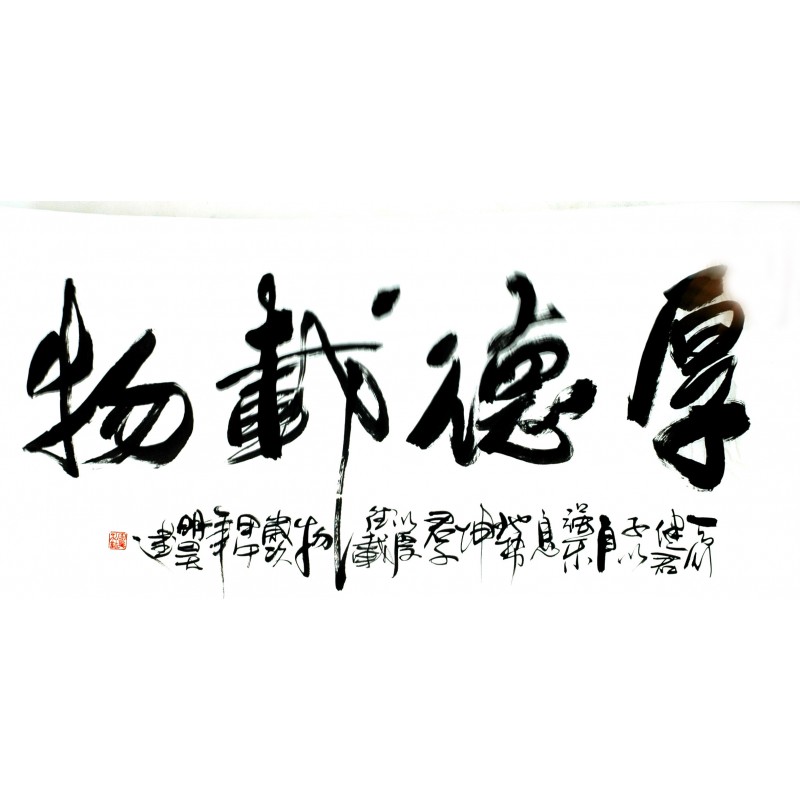 厚德載物
天行健君子以自強不息地勢坤君子以厚德載物歲次甲午年